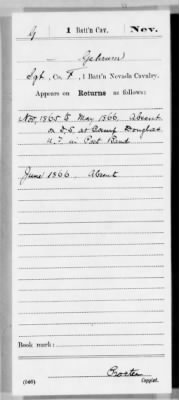 G | 1 Batt'n Cav. | Nev.
Sgt, Co. F, 1 Batt'n Nevada Cavalry.
Appears on Returns as follows:
Nov. 1865 to May 1866 Absent
on D.S. at Camp Douglas
U.T. in Post Band
June 1866. Absent
Book mark:
(546)
Copyist.